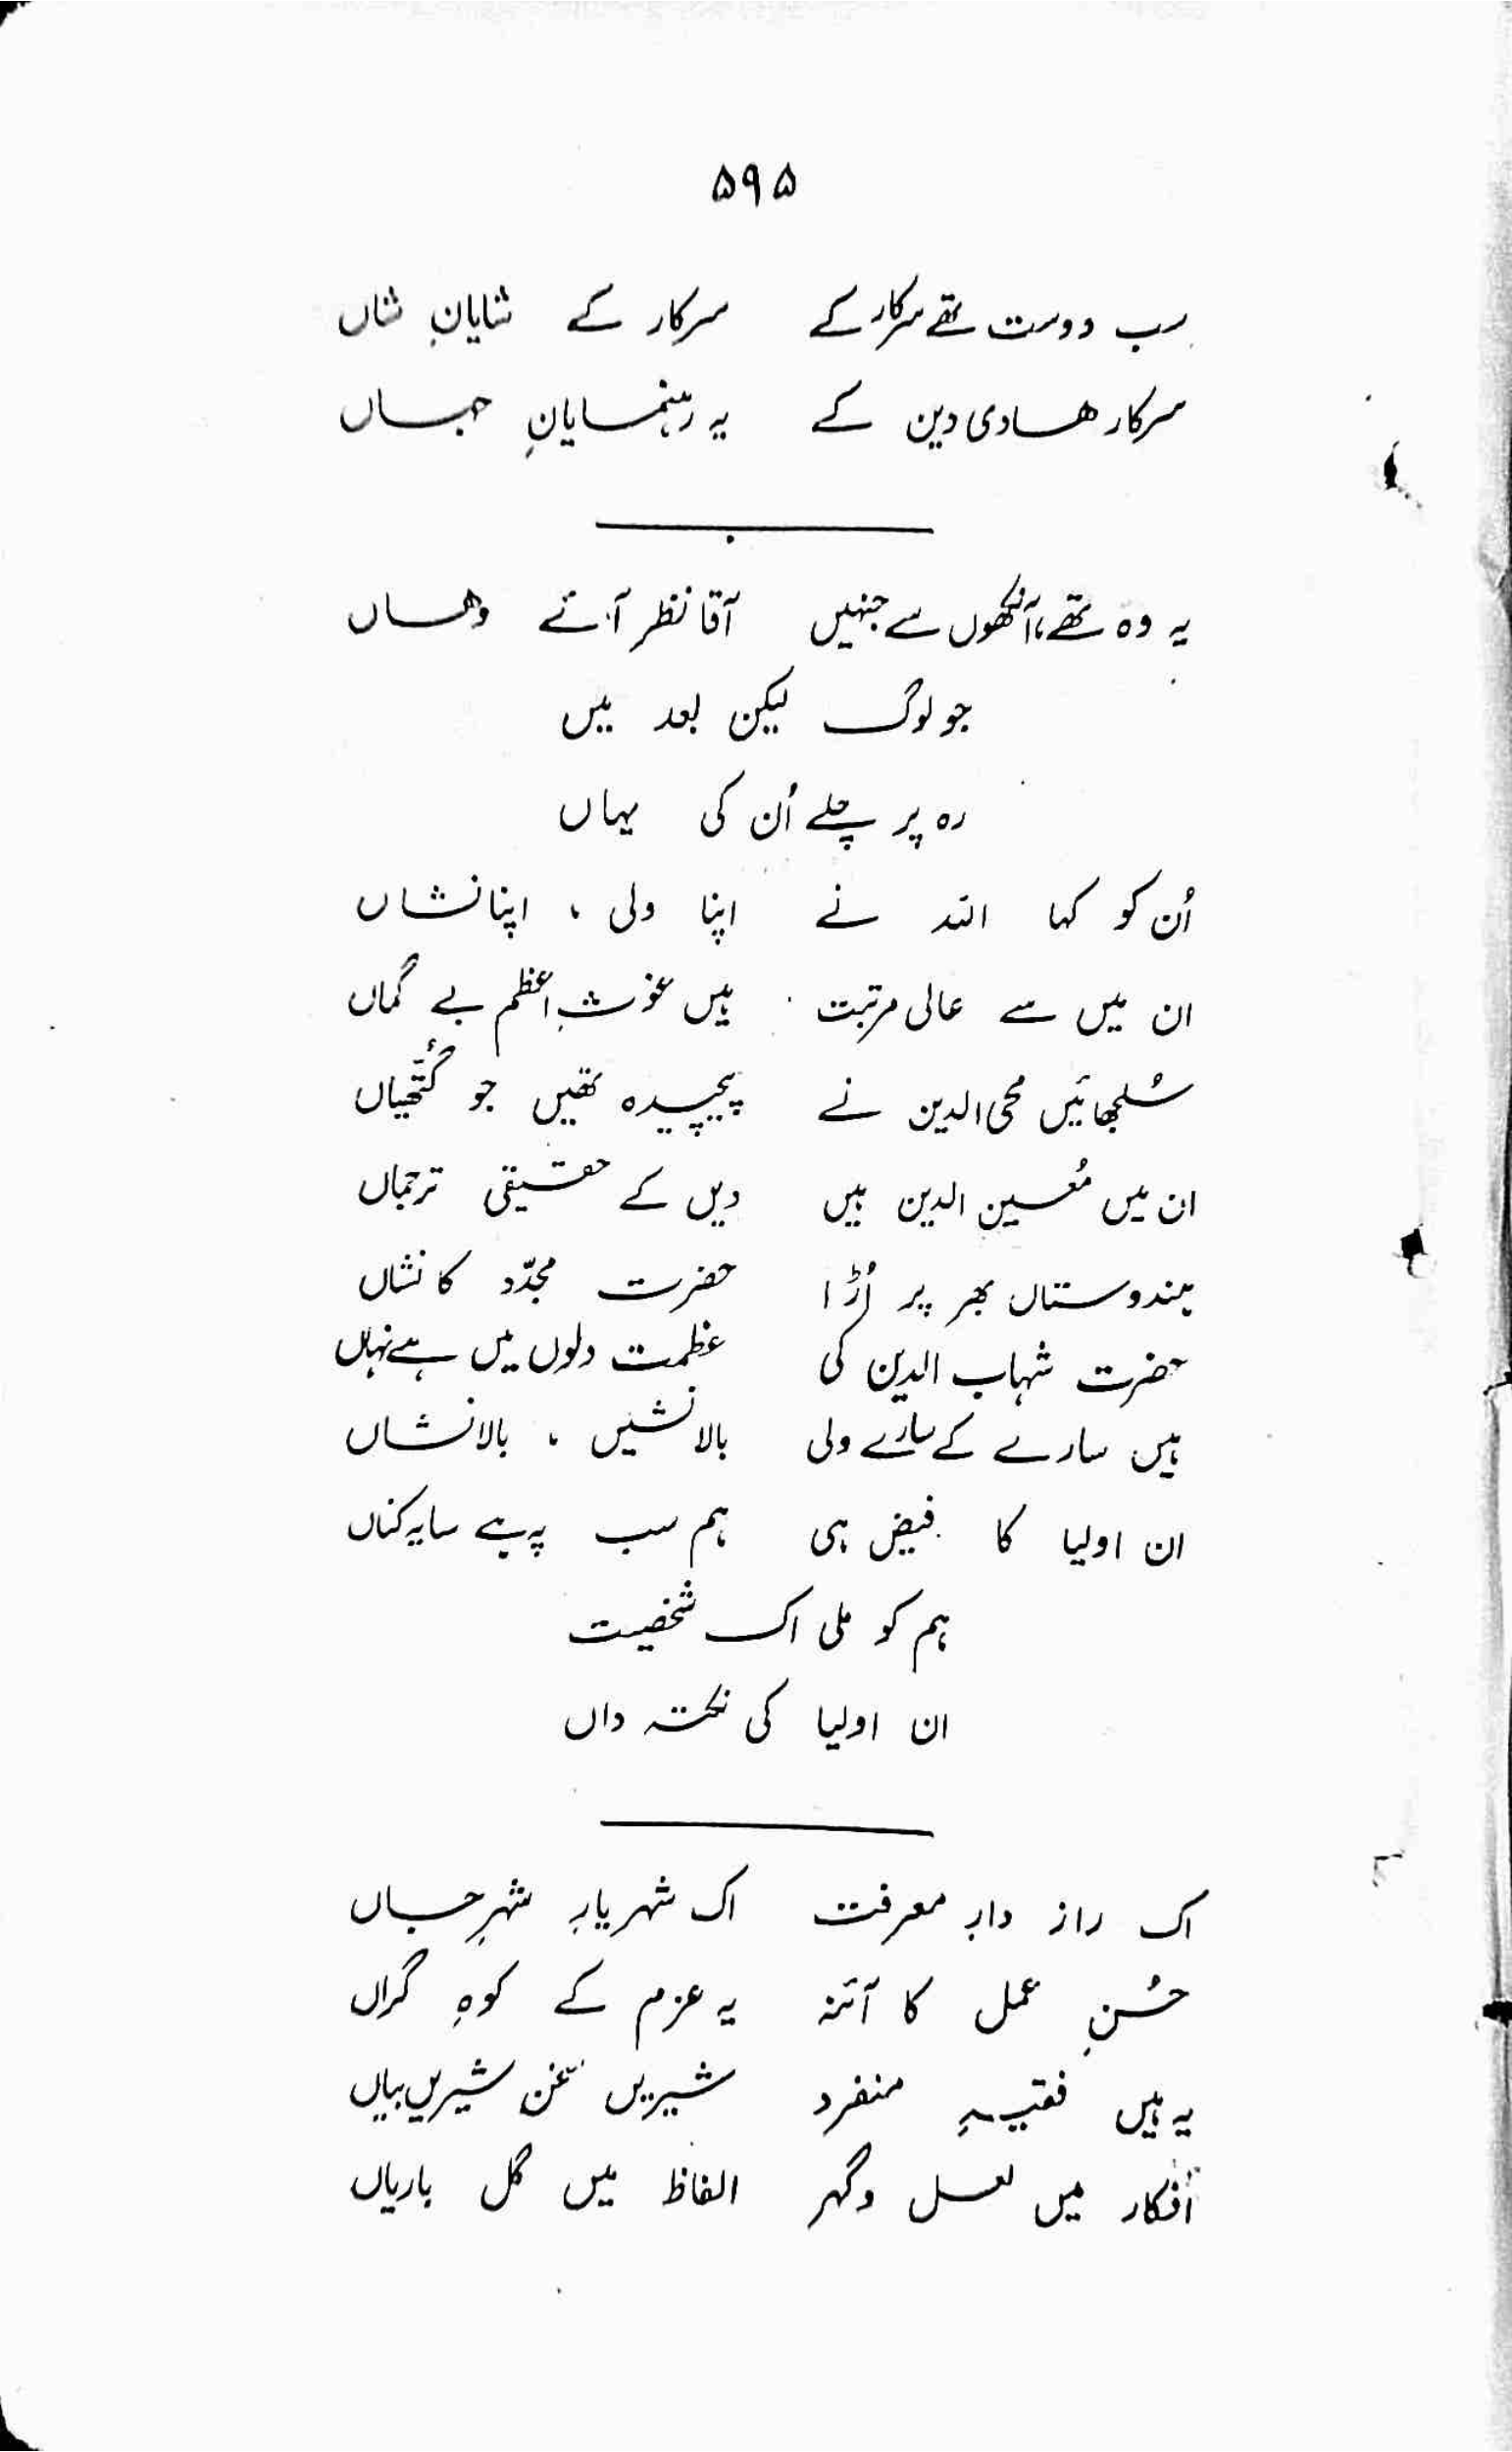 ۵۹۵
سب دوست تھے سرکار کے سرکار کے شایانِ شاں
سرکار ھادی دین کے یہ رہنمایانِ جہاں
یہ وہ تھے، آنکھوں سے جنہیں آقا نظر آئے وھاں
جو لوگ لیکن بعد میں
رہ پر چلے اُن کی یہاں
اُن کو کہا اللہ نے اپنا ولی ، اپنا نشاں
ان میں سے عالی مرتبت ہیں غوثِ اعظم بے گماں
سُلجھائیں محی الدین نے پیچیدہ تھیں جو گُتّھیاں
ان میں مُعین الدین ہیں دیں کے حقیقی ترجماں
ہندوستاں بھر پر اُڑا حضرت مجدّد کا نشاں
حضرت شہاب الدین کی عظمت دلوں میں ہے نہاں
ہیں سارے کے سارے ولی بالا نشیں ، بالا نشاں
ان اولیا کا فیض ہی ہم سب پہ ہے سایہ کناں
ہم کو ملی اک شخصیت
ان اولیا کی نکتہ داں
اک راز دارِ معرفت اک شہریارِ شہرِ جاں
حُسنِ عمل کا آئنہ یہ عزم کے کوہِ گراں
یہ ہیں فقیہہِ منفرد شیریں سخن شیریں بیاں
افکار میں لعل و گہر الفاظ میں گل باریاں